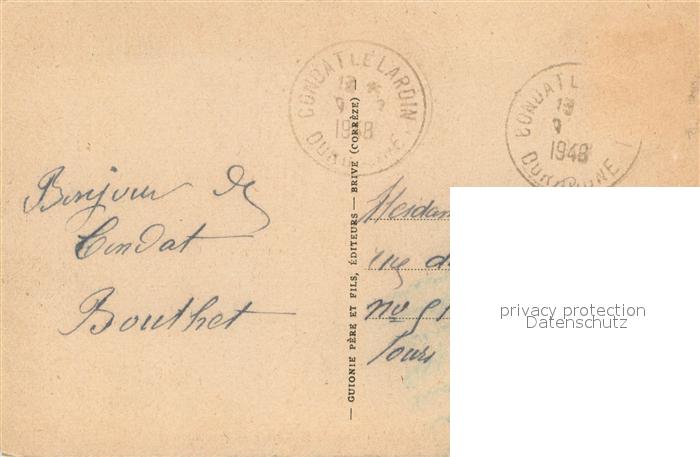 CONDAT LE LARDIN
1948
DORDOGNE
CONDAT L
1948
DORDOGNE
Bonjour de
Condat
Bouthet
— GUIONIE PÈRE ET FILS, ÉDITEURS — BRIVE (CORRÈZE) —
Mesdam
rue d
no 51
Tours
privacy protection
Datenschutz